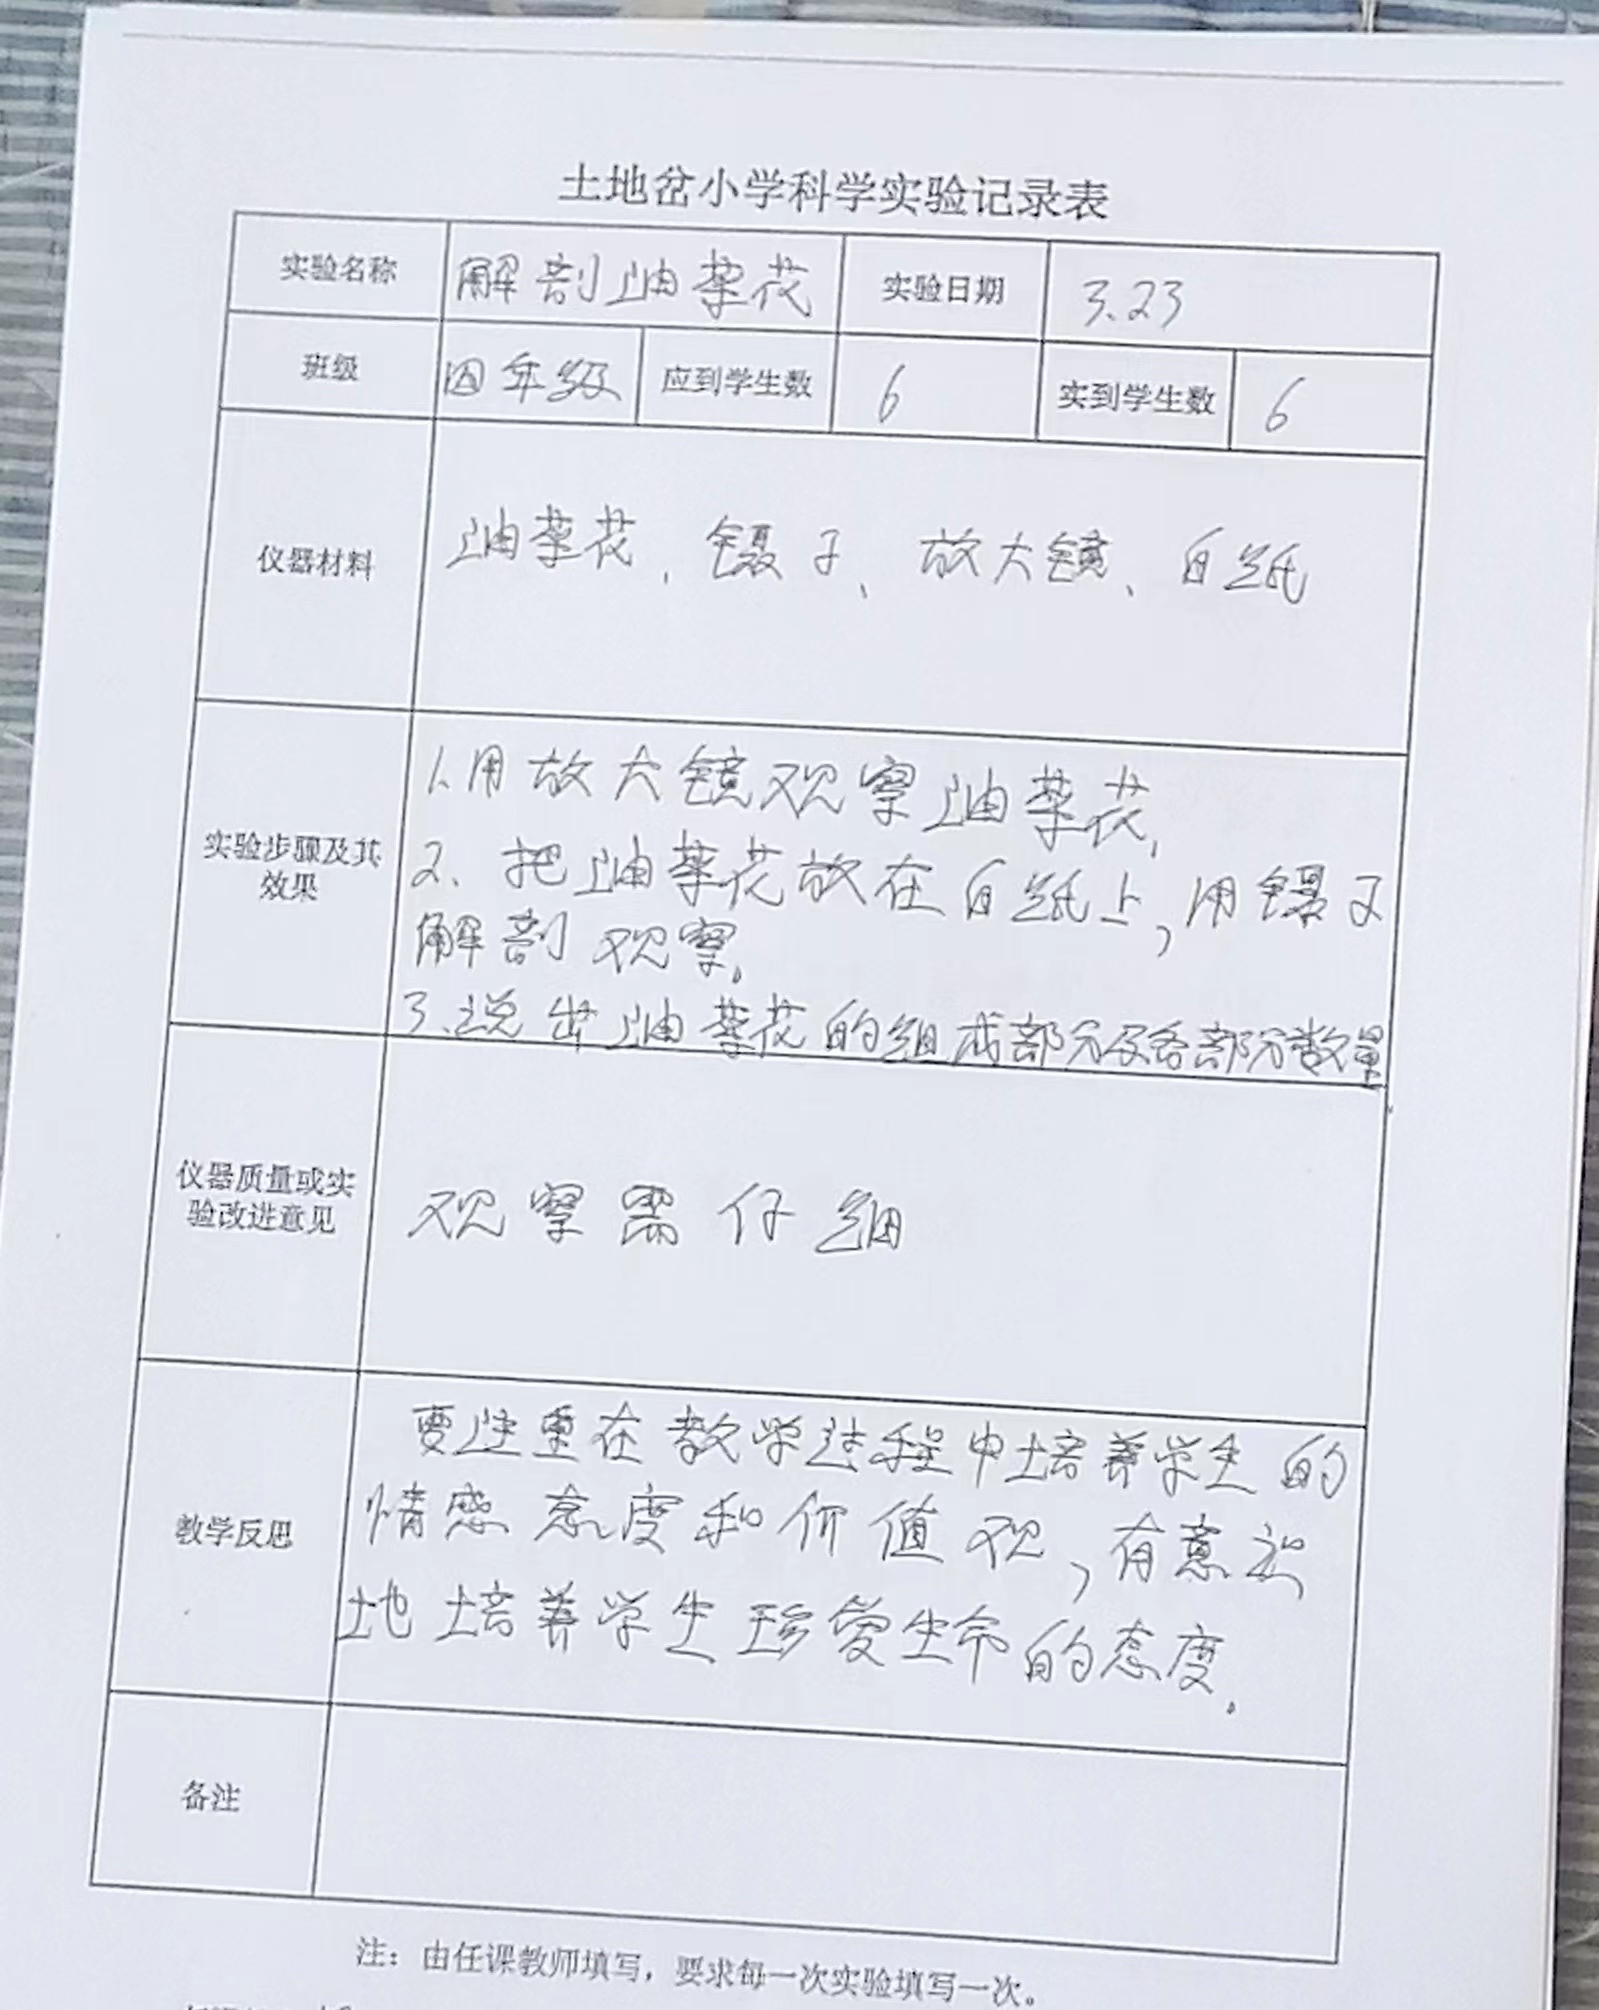 土地岔小学科学实验记录表
实验名称 解剖油菜花 实验日期 3.23
班级 四年级 应到学生数 6 实到学生数 6
仪器材料 油菜花、镊子、放大镜、白纸
实验步骤及其
效果
1.用放大镜观察油菜花,
2、把油菜花放在白纸上,用镊子
解剖观察。
3.说出油菜花的组成部分及各部分数量.
仪器质量或实
验改进意见
观察需仔细
教学反思
要注重在教学过程中培养学生的
情感态度和价值观,有意识
地培养学生珍爱生命的态度。
备注
注：由任课教师填写，要求每一次实验填写一次。